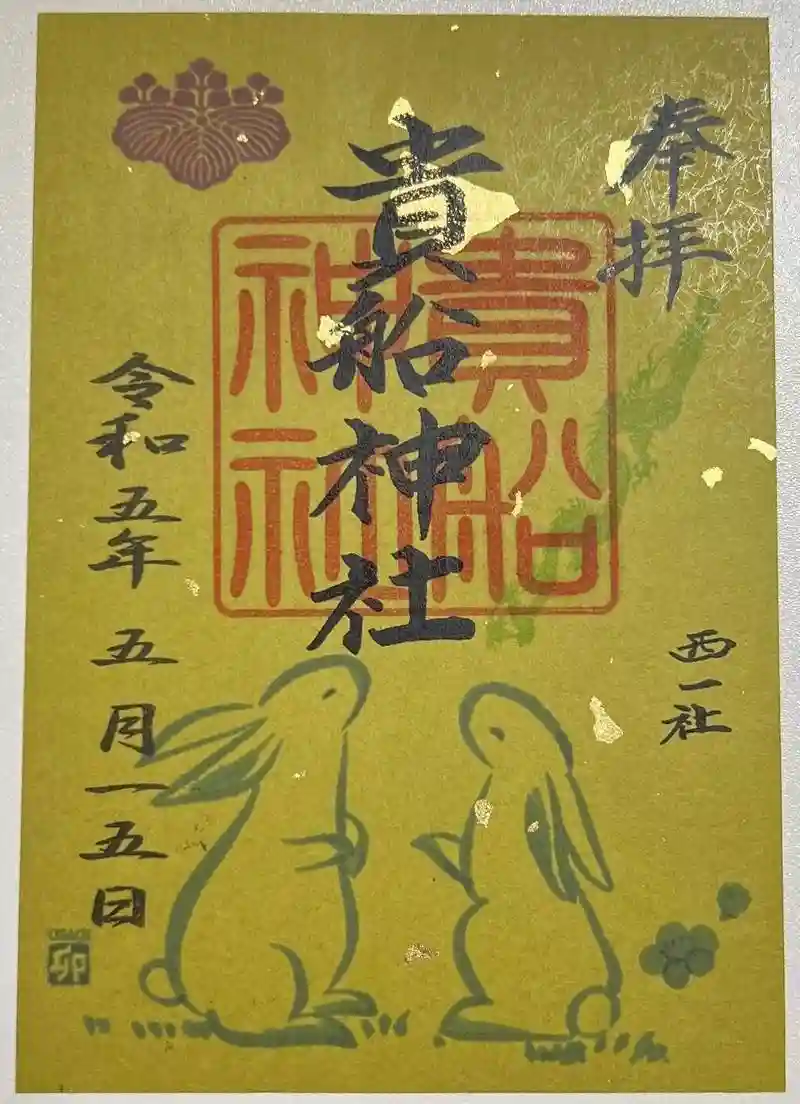 奉拝
西一社
貴船神社
貴船
神社
令和五年五月一五日
卯